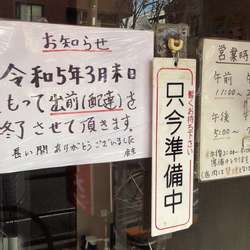 お知らせ
令和5年3月末日
もって出前(配達)を
終了させて頂きます。
長い間ありがとうございました
店主
暫くお待ち下さい
只今準備中
営業時
午前
11:00~2
午後
5